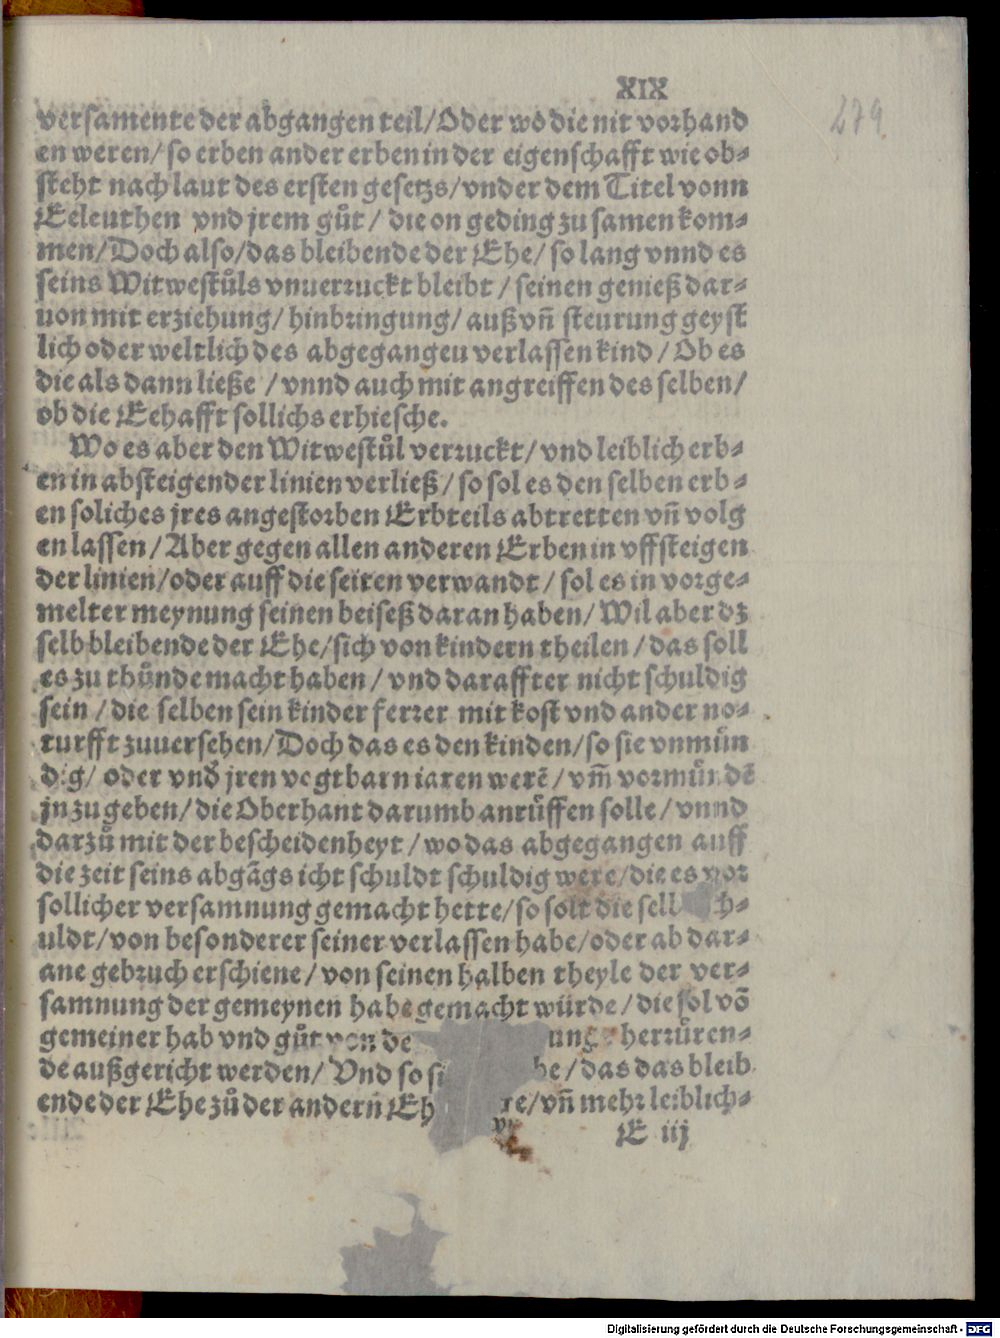 XIX
279
versamente der abgangen teil/Oder wo die nit vorhand
en weren/ so erben ander erben in der eigenschafft wie ob⸗
steht nach laut des ersten gesetzs/vnder dem Titel vonn
Eeleuthen vnd jrem guͦt / die on geding zu samen kom⸗
men/Doch also/das bleibende der Ehe/ so lang vnnd es
seins Witwestuͦls vnuerruckt bleibt / seinen genieß dar⸗
uon mit erziehung/ hinbringung/ auß vn̄ steurung geyst
lich oder weltlich des abgegangen verlassen kind / Ob es
die als dann ließe / vnnd auch mit angreiffen des selben/
ob die Eehafft sollichs erhiesche.
Wo es aber den Witwestuͦl verruckt/ vnd leiblich erb⸗
en in absteigender linien verließ/ so sol es den selben erb⸗
en soliches jres angestorben Erbteils abtretten vn̄ volg
en lassen / Aber gegen allen anderen Erben in vffsteigen
der linien/oder auff die seiten verwandt / sol es in vorge⸗
melter meynung seinen beiseß daran haben/ Wil aber dz
selb bleibende der Ehe/sich von kindern theilen / das soll
es zu thuͦnde macht haben / vnd daraffter nicht schuldig
sein / die selben sein kinder ferrer mit kost vnd ander no⸗
turfft zuuersehen/Doch das es den kinden/so sie vnmuͤn
dig/ oder vnd̕ jren vogtbarn iaren werē / vm̄ vormuͤndē
jn zu geben/ die Oberhant darumb anruͤffen solle / vnnd
darzuͦ mit der bescheidenheyt / wo das abgegangen auff
die zeit seins abgāgs icht schuldt schuldig were/die es vor
sollicher versamnung gemacht hette/so solt die sell h⸗
uldt/von besonderer seiner verlassen habe/oder ab dar⸗
ane gebruch erschiene / von seinen halben theyle der ver⸗
samnung der gemeynen habe gemacht wuͤrde / die sol vō
gemeiner hab vnd guͦt von de ung herruͤren⸗
de außgericht werden/ Vnd so si he / das das bleib
ende der Ehe zuͦ der andern̄ Eh re/vn̄ mehr leiblich⸗
E iij
Digitalisierung gefördert durch die Deutsche Forschungsgemeinschaft - DFG